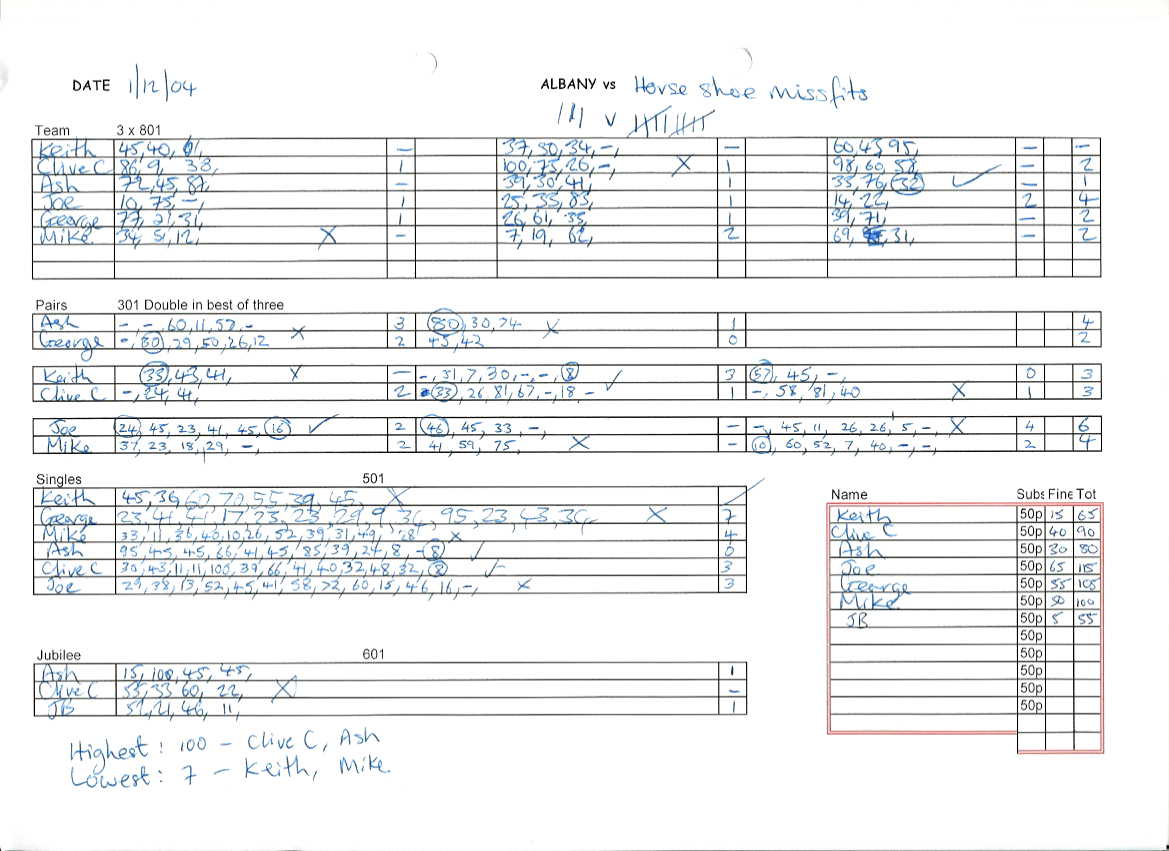 DATE 1/12/04 ALBANY vs Horse shoe missfits
||| v |||| ||||
Team 3 x 801
Keith 45, 40, 61, – 37, 30, 34, –, – 60, 45, 95, – –
Clive C 86, 9, 38, 1 100, 75, 26, –, X 1 98, 60, 58, – 2
Ash 72, 45, 87, – 39, 30, 41, 1 33, 76, 32 ✓ – 1
Joe 10, 75, –, 1 25, 35, 83, 1 14, 22, 2 4
George 77, 21, 31, 1 26, 61, 35, 1 39, 71, – 2
Mike 34, 51, 12, X – 7, 19, 62, 2 69, 31, – 2
Pairs 301 Double in best of three
Ash –, –, 60, 11, 57, – X 3 80, 30, 74 X 1 4
George –, 30, 29, 50, 26, 12 2 45, 42 0 2
Keith 33, 43, 41, X – –, 31, 7, 30, –, –, 8 ✓ 3 57, 45, –, 0 3
Clive C –, 24, 41, 2 33, 26, 81, 67, –, 18, – 1 –, 58, 81, 40 X 1 3
Joe 24, 45, 23, 41, 45, 16 ✓ 2 46, 45, 33, –, – –, 45, 11, 26, 26, 5, –, X 4 6
Mike 37, 23, 18, 29, –, 2 41, 59, 75, X – 10, 60, 52, 7, 40, –, –, 2 4
Singles 501
Keith 45, 36, 60, 70, 55, 39, 45, X
George 23, 41, 41, 17, 23, 23, 29, 9, 34, 95, 23, 43, 34 X 7
Mike 33, 11, 36, 40, 10, 26, 52, 39, 31, 49, 28 X 4
Ash 95, 45, 45, 66, 41, 45, 85, 39, 24, 8, –, 8 ✓ 6
Clive C 30, 43, 11, 11, 100, 39, 66, 41, 40, 32, 48, 32, 8 ✓ 3
Joe 29, 38, 13, 52, 45, 41, 58, 72, 60, 15, 46, 16, –, X 3
Name Subs Fine Tot
Keith 50p 15 65
Clive C 50p 40 90
Ash 50p 30 80
Joe 50p 65 115
George 50p 55 105
Mike 50p 50 100
JB 50p 5 55
50p
50p
50p
50p
50p
Jubilee 601
Ash 15, 100, 45, 45, 1
Clive C 55, 33, 60, 22, X –
JB 57, 21, 46, 11, 1
Highest : 100 – Clive C, Ash
Lowest : 7 – Keith, Mike